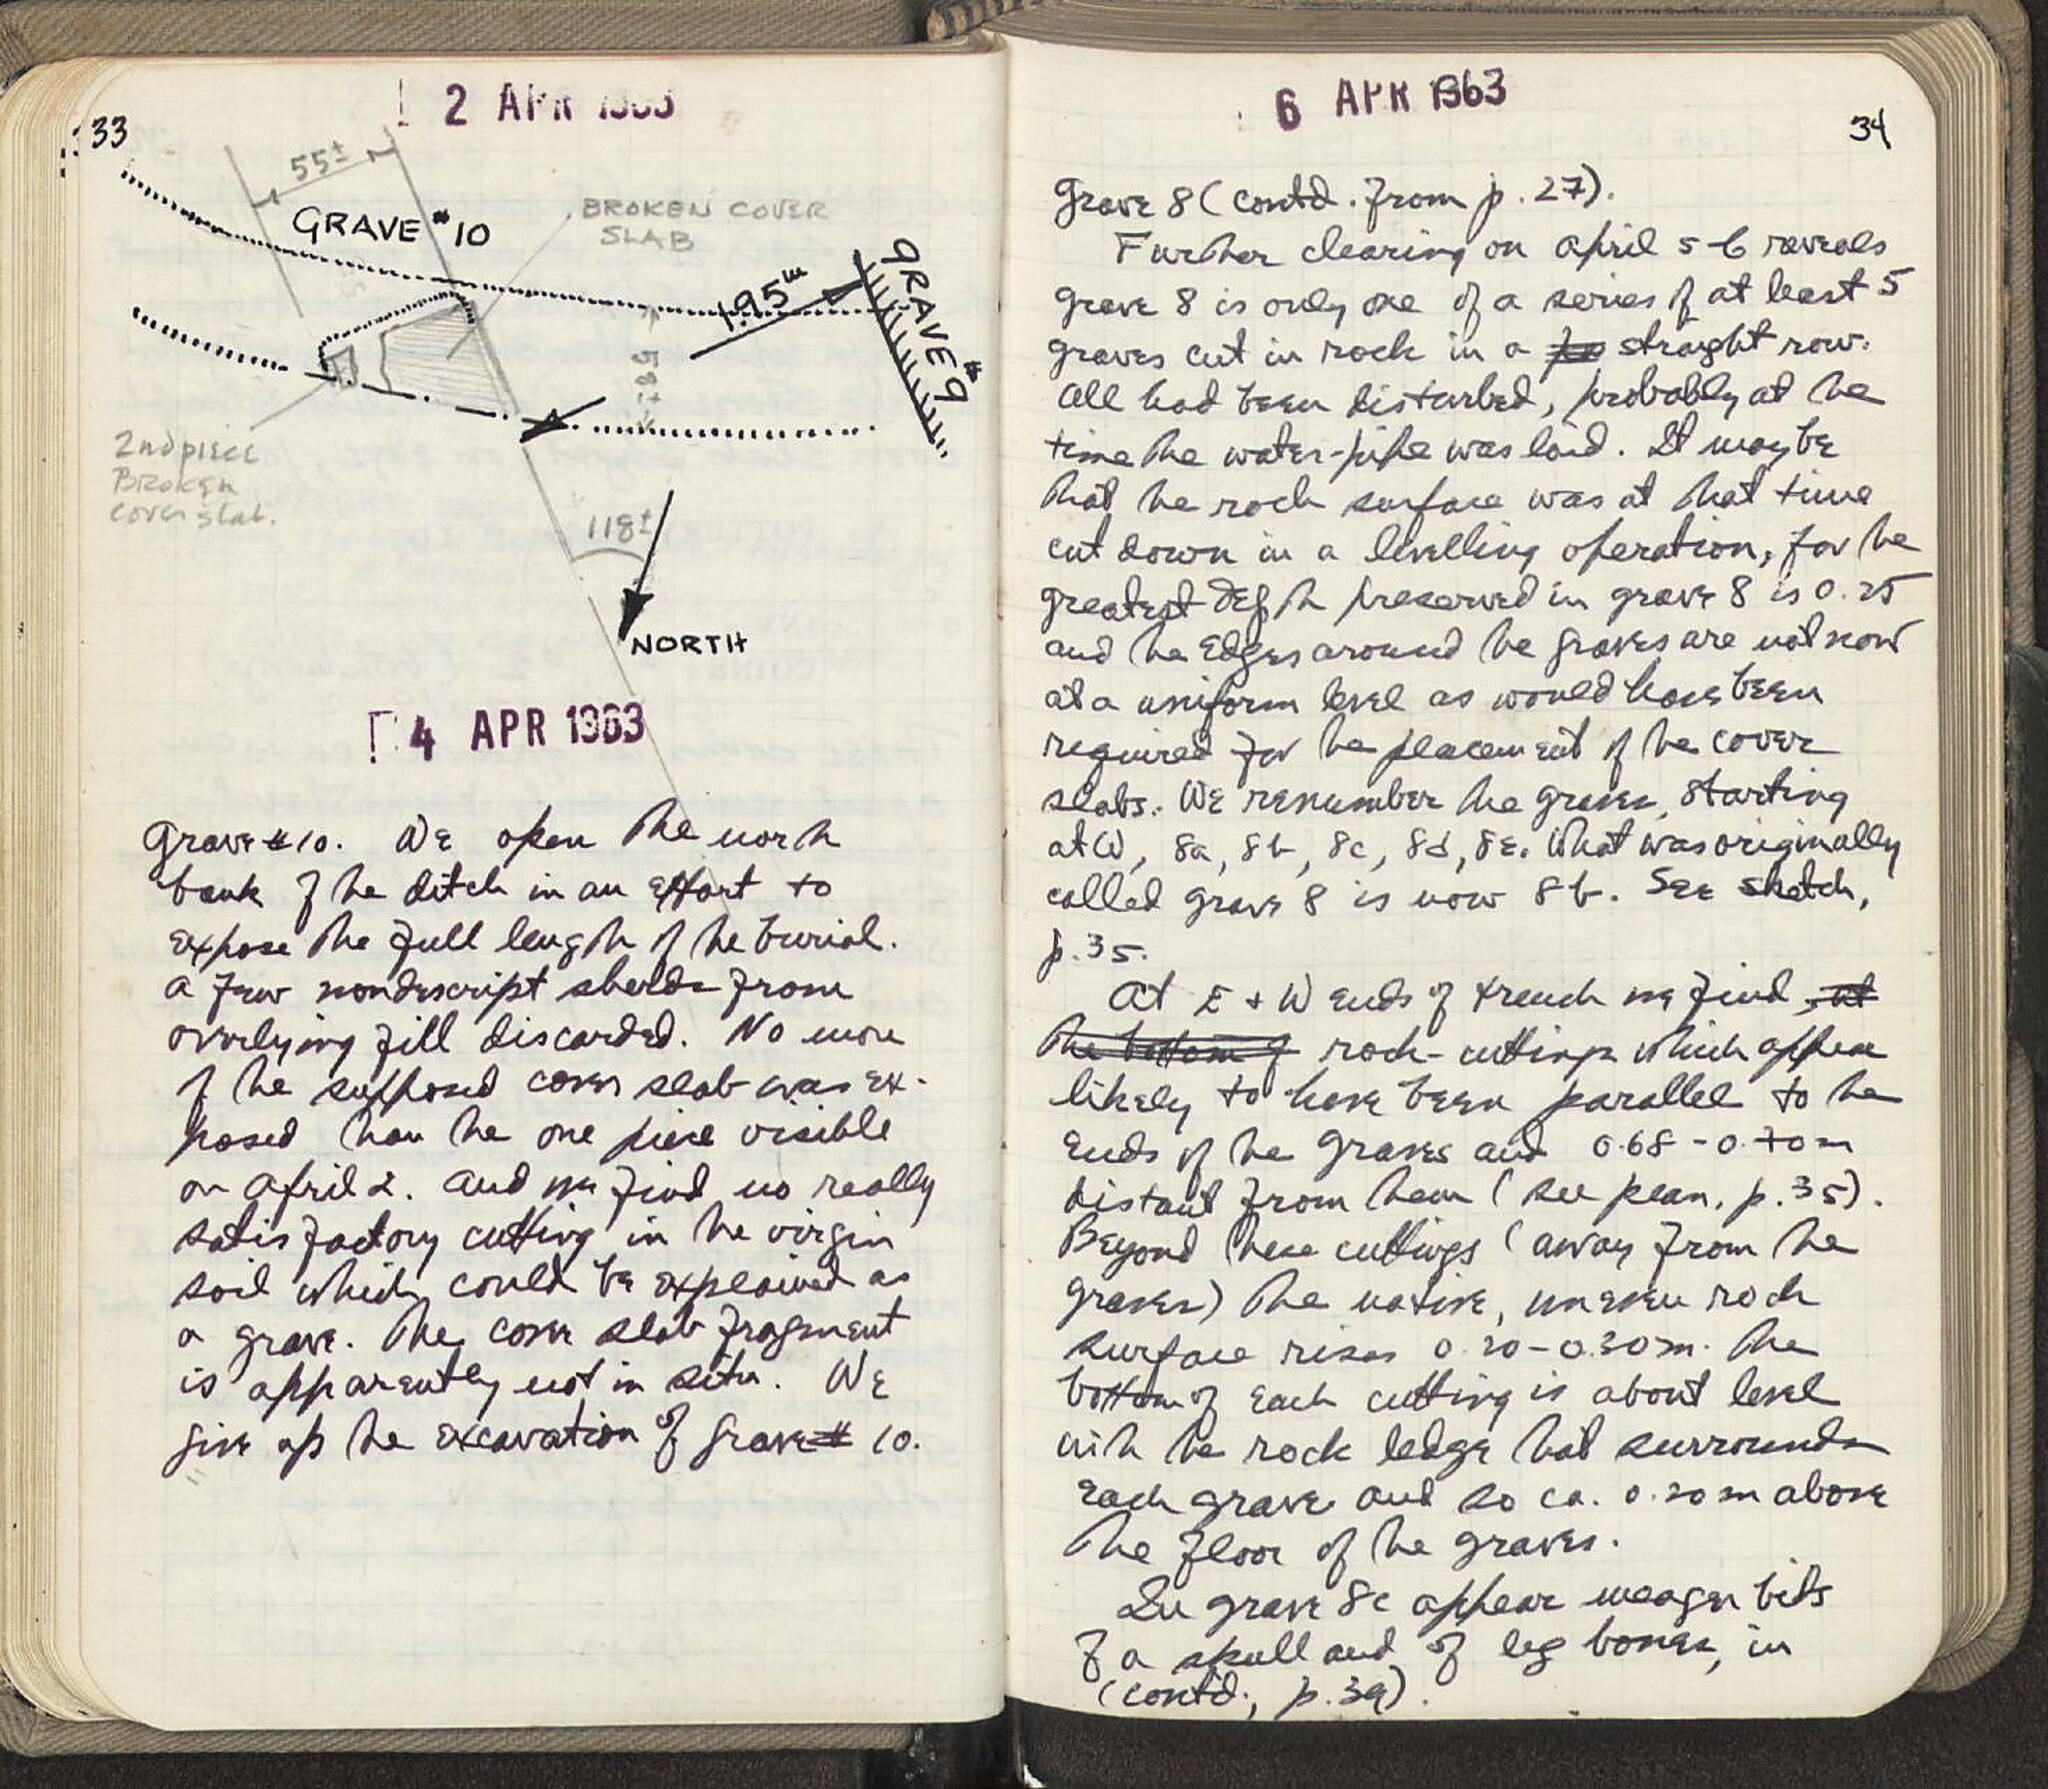 33
2 APR 1963
55±
GRAVE #10
BROKEN COVER
SLAB
1.95m
GRAVE 9
.58±
2nd piece
Broken
cover slab.
118±
NORTH
4 APR 1963
Grave #10. We open the north
bank of the ditch in an effort to
expose the full length of the burial.
A few nondescript sherds from
overlying fill discarded. No more
of the supposed cover slab was ex-
posed than the one piece visible
on April 2. And we find no really
satisfactory cutting in the virgin
soil which could be explained as
a grave. The cover slab fragment
is apparently not in situ. We
give up the excavation of Grave # 10.
6 APR 1963
34
Grave 8 (contd. from p. 27).
Further clearing on April 5-6 reveals
grave 8 is only one of a series of at least 5
graves cut in rock in a straight row.
All had been disturbed, probably at the
time the water-pipe was laid. It may be
that the rock surface was at that time
cut down in a levelling operation, for the
greatest depth preserved in grave 8 is 0.25
and the edges around the graves are not now
at a uniform level as would have been
required for the placement of the cover
slabs. We renumber the graves, starting
at W, 8a, 8b, 8c, 8d, 8e. What was originally
called grave 8 is now 8b. See sketch,
p. 35.
At E + W ends of trench we find, at
the bottom of rock-cuttings which appear
likely to have been parallel to the
ends of the graves and 0.68-0.70m
distant from them (see plan, p. 35).
Beyond these cuttings (away from the
graves) the native, uneven rock
surface rises 0.20-0.30m. The
bottom of each cutting is about level
with the rock ledge that surrounds
each grave and so ca. 0.20m above
the floor of the graves.
In grave 8c appear meager bits
of a skull and of leg bones, in
(contd., p. 39).